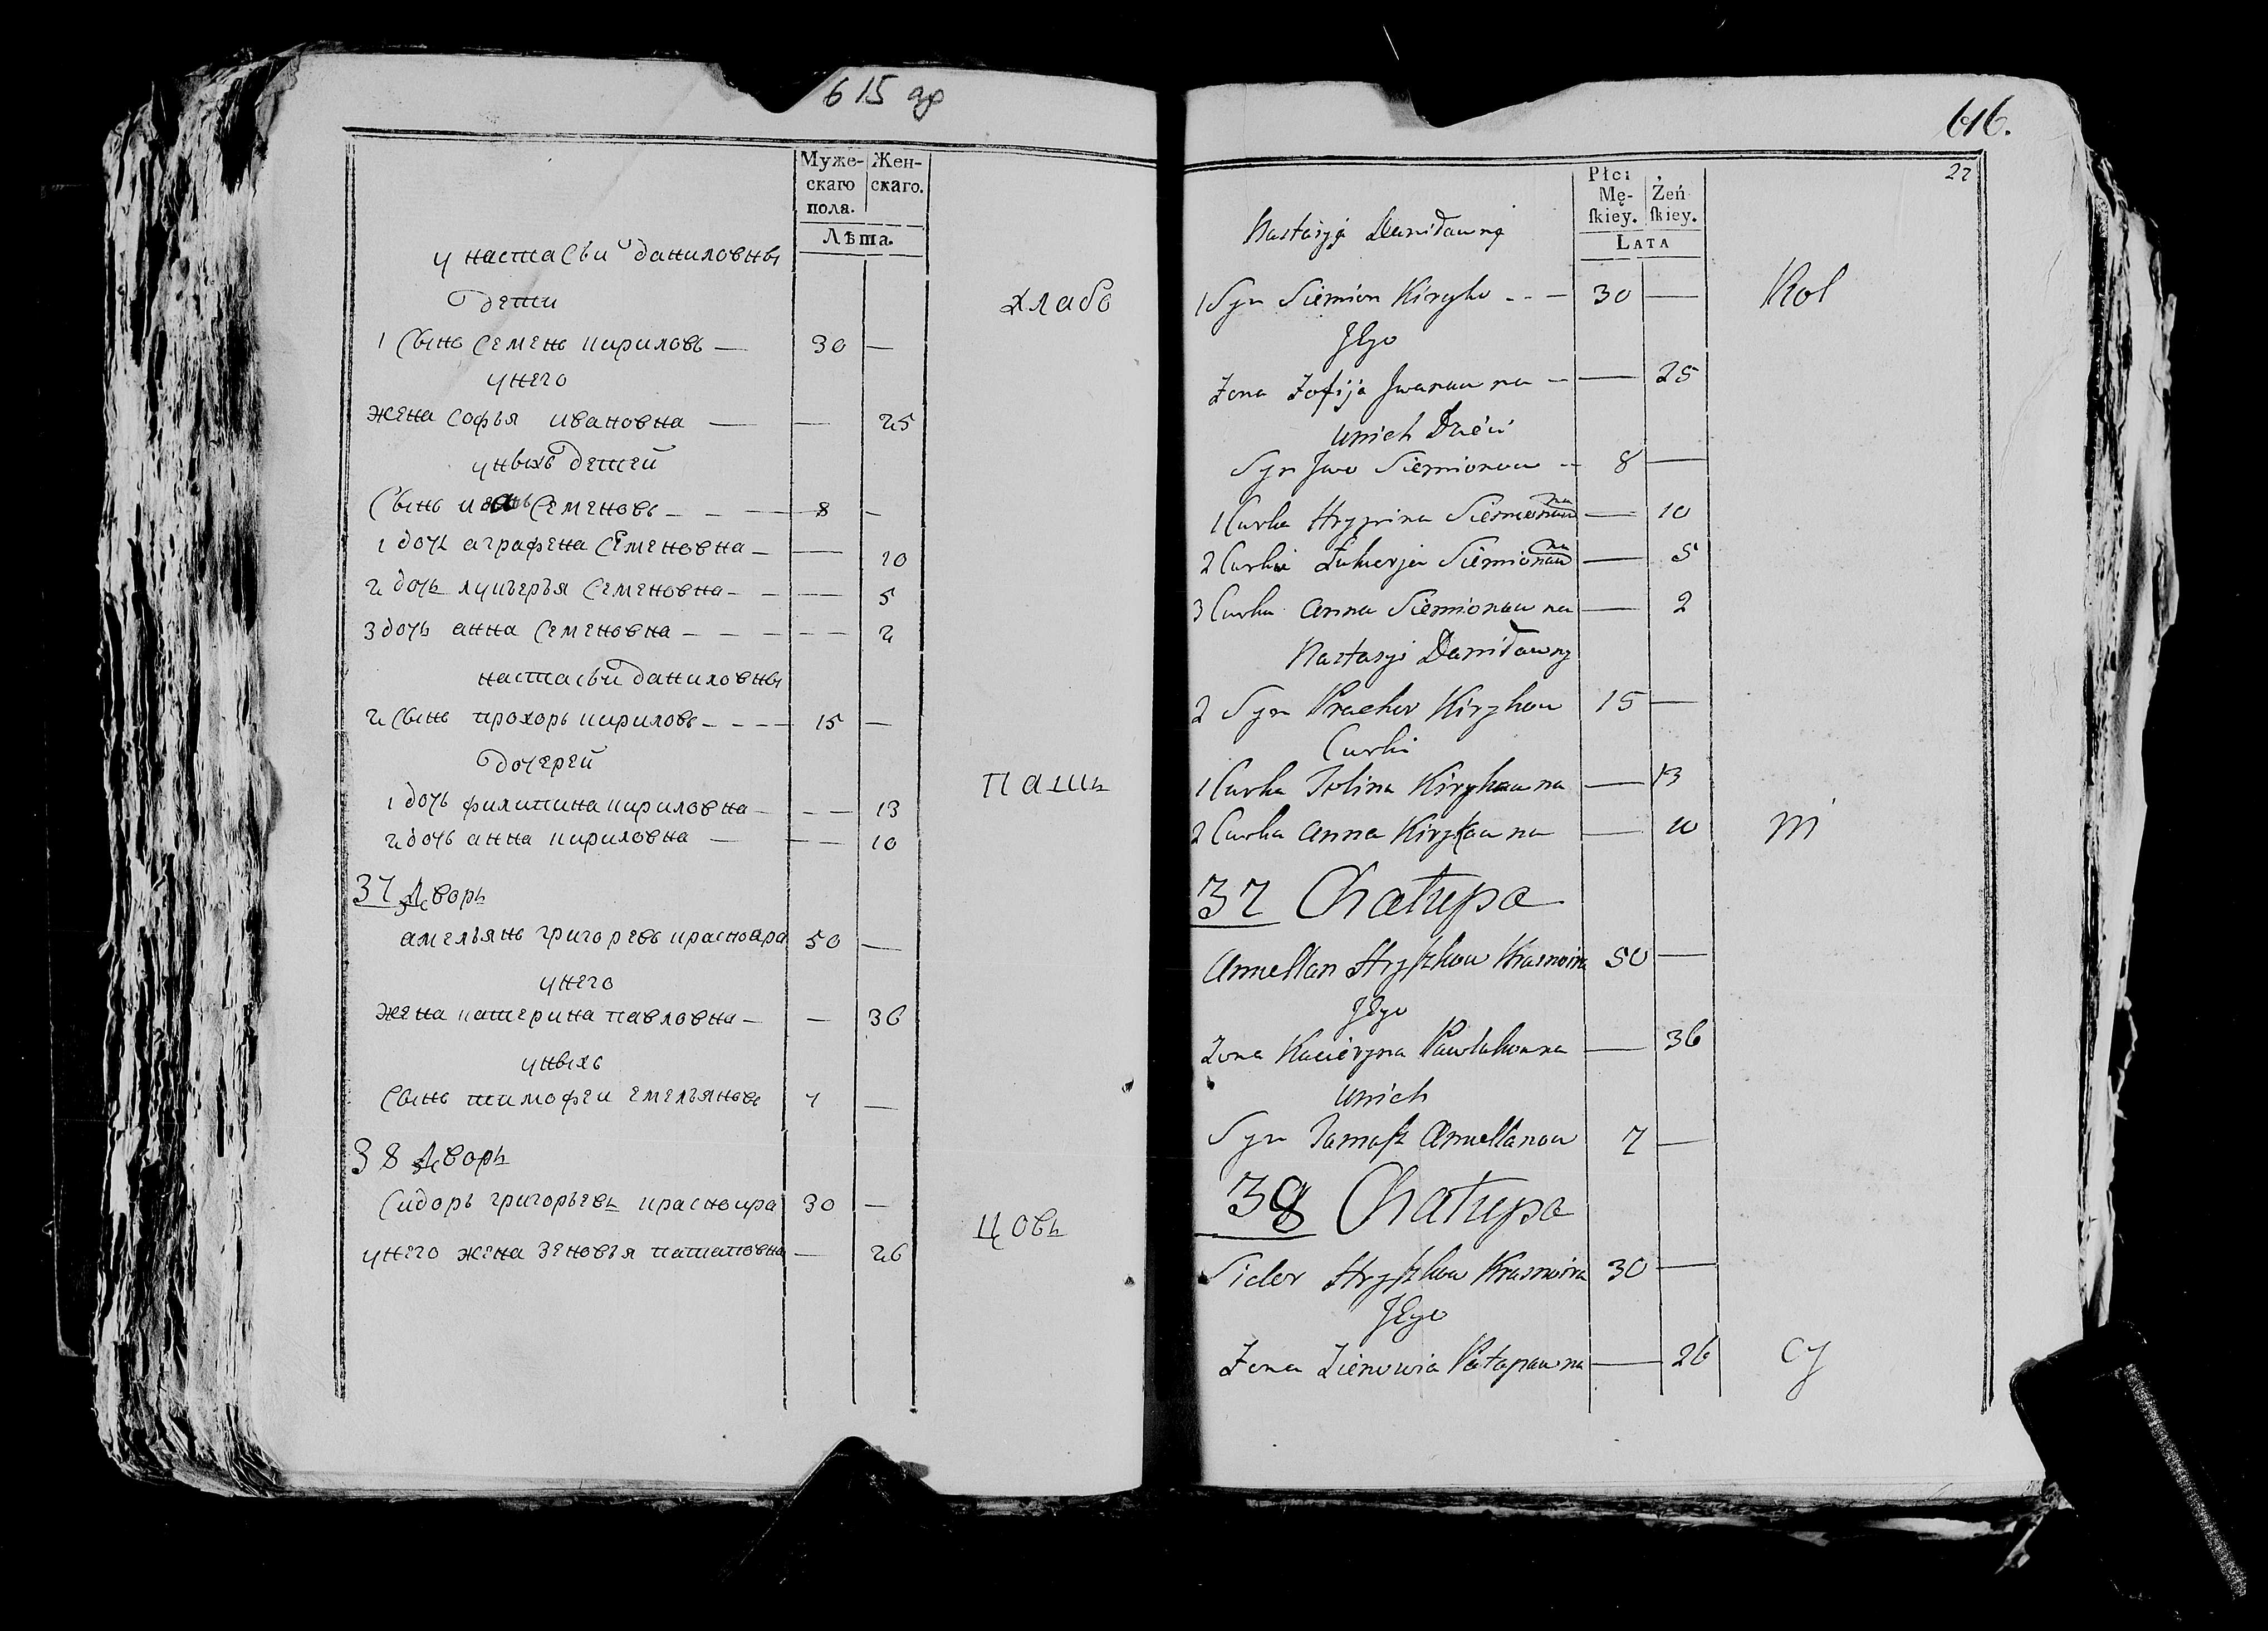 615 об
Муже-
скаго
пола.
Жен-
скаго.
Лѣта.
у настасьи даниловны
дети
1 сынъ семенъ кириловъ — 30 —
унего
жена софья ивановна — — 25
уныхъ детей
сынъ семеновъ — 8 —
1 дочь аграфена семеновна — — 10
2 дочь лукерья семеновна — — 5
3 дочь анна семеновна — — 2
настасьи даниловны
2 сынъ прохоръ кириловъ — 15 —
дочерей
1 дочь филипина кириловна — — 13
2 дочь анна кириловна — — 10
37 дворъ
амельянъ григоревъ 50 —
унего
жена катерина павловна — — 36
уныхъ
сынъ тимофеи емельяновъ 7 —
38 дворъ
сидоръ григорьевъ краскоира 30 —
унего жена зеновья потаповна — 26
хлабо
пашк
цовъ
616.
22
Płci
Mę-
ſkiey.
Żeń
ſkiey.
LATA
Nastasyi Daniławny
1 Syn Siemion Kiryko -- — 30 —
Jego
Zona Zofija Jwanauna -- — 25
Unich Dzieci
Syn Jwo Siemionow -- 8 —
1 Curka Hrypina Siemionauna — 10
2 Curka Łukerja Siemionauna — 5
3 Curka Anna Siemionauna — 2
Nastasyi Daniławny
2 Syn Prachor Kirykow 15 —
Curki
1 Curka Kirykauna — 13
2 Curka Anna Kirykauna — 10
37 Chatupa
Amellan Hryſzkow 50 —
Jego
Zona Kacieryna Pawlukowna — 36
Unich
Syn Tamaſz Amellanow 7 —
38 Chatupa
Sidor Hryſzkow 30 —
Jego
Zona Zienowia Patapauna — 26
Kol
ni
cy